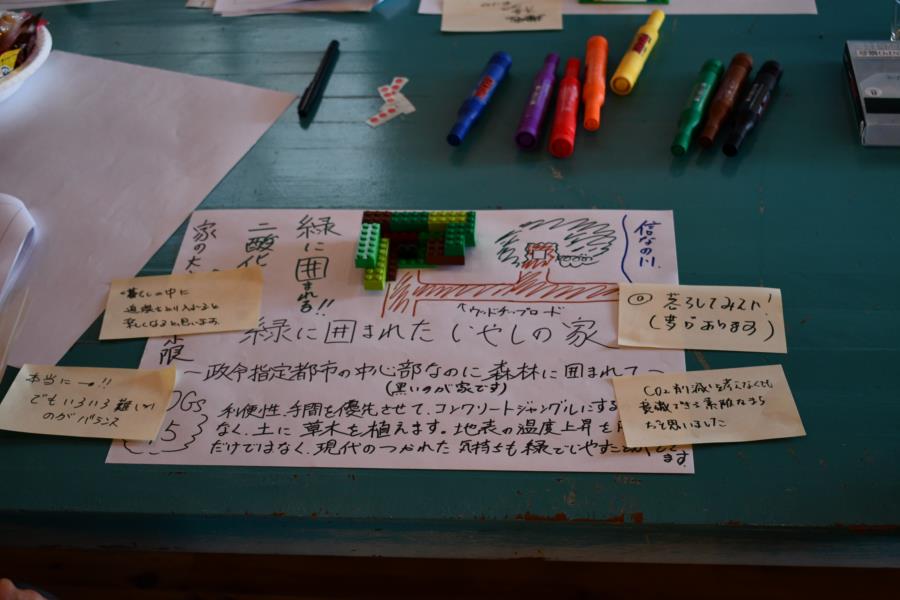 緑に
囲まれる!!
二酸化
家の大
信なの川
ウッドチップロード
緑に囲まれた いやしの家
〜政令指定都市の中心部なのに森林に囲まれて〜
(黒いのが家です)
利便性、手間を優先させて、コンクリートジャングルにする
なく、土に 草木を植えます。地表の温度上昇を
だけではなく、現代のつかれた 気持ちも緑でいやす
ます
・暮しの中に
楽しくなると思います。
本当に一!!
でもいろいろ難しい
のがバランス
限
Gs
15
(夢があります)
CO₂削減を考えなくても
素敵なまち
だと思いました